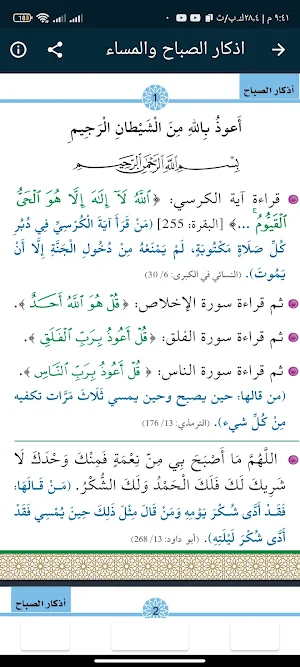 ٩:٤١ م | ٢٨٫٤ك.ب/ث
183
اذكار الصباح والمساء
أذكار الصباح
1
أَعوذُ بِاللهِ مِنَ الْشَيْطانِ الْرَجيمِ
بِسْمِ اللَّهِ الرَّحْمَنِ الرَّحِيمِ
قراءة آية الكرسي: ﴿ اللَّهُ لَا إِلَهَ إِلَّا هُوَ الْحَيُّ
الْقَيُّومُ ...﴾ [البقرة: 255] (مَنْ قَرَأَ آيَةَ الْكُرْسِيِّ فِي دُبُرِ
كُلِّ صَلَاةٍ مَكْتُوبَةٍ، لَمْ يَمْنَعْهُ مِنْ دُخُولِ الْجَنَّةِ إِلَّا أَنْ
يَمُوتَ). (النسائي في الكبرى: 6/ 30)
ثم قراءة سورة الإخلاص: ﴿ قُلْ هُوَ اللَّهُ أَحَدٌ ﴾.
ثم قراءة سورة الفلق: ﴿ قُلْ أَعُوذُ بِرَبِّ الْفَلَقِ ﴾.
ثم قراءة سورة الناس: ﴿ قُلْ أَعُوذُ بِرَبِّ النَّاسِ ﴾.
(من قالها: حين يصبح وحين يمسي ثَلَاثَ مَرَّات تكفيه
مِنْ كُلِّ شيء). (الترمذي: 13/ 176)
اللَّهُمَّ مَا أَصْبَحَ بِي مِنْ نِعْمَةٍ فَمِنْكَ وَحْدَكَ لَا
شَرِيكَ لَكَ فَلَكَ الْحَمْدُ وَلَكَ الشُّكْرُ. (مَـنْ قَـالَهَا:
فَقَـدْ أَدَّى شُـكْرَ يَوْمِهِ وَمَنْ قَالَ مِثْلَ ذَلِكَ حِينَ يُمْسِي فَقَدْ
أَدَّى شُكْرَ لَيْلَتِهِ). (أبو داود: 13/ 268)
أذكار الصباح
2